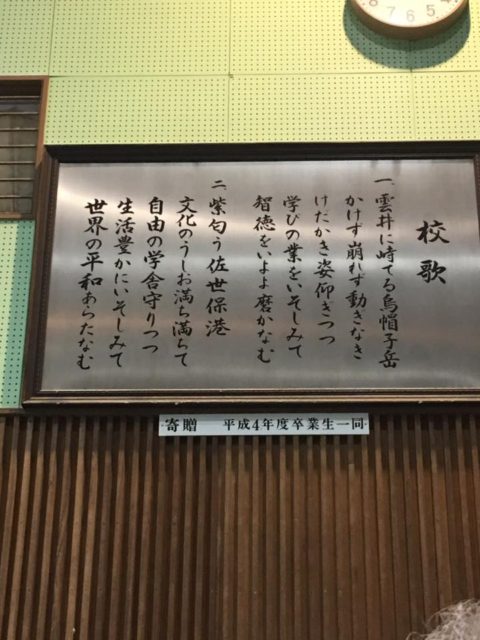 校歌
一、雲井に峙てる烏帽子岳
かけず崩れず動きなき
けだかき姿仰ぎつつ
学びの業をいそしみて
智徳をいよよ磨かなむ
二、紫匂う佐世保港
文化のうしお満ち満ちて
自由の学舎守りつつ
生活豊かにいそしみて
世界の平和あらたなむ
寄贈 平成4年度卒業生一同
8 7 6 5 4